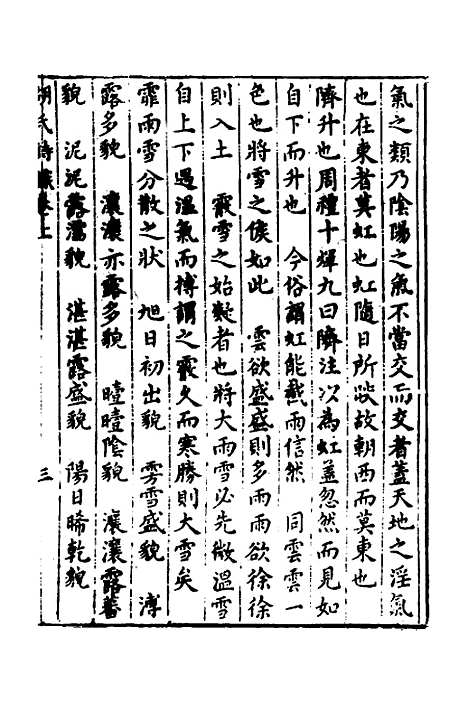 氣之類乃陰陽之氣不當交而交者蓋天地之淫氣
也在東者莫虹也虹隨日所映故朝西而莫東也
隮升也周禮十煇九曰隮注以為虹蓋忽然而見如
自下而升也　今俗謂虹能截雨信然　同雲雲一
色也將雪之候如此　雲欲盛盛則多雨雨欲徐徐
則入土　霰雪之始凝者也將大雨雪必先微溫雪
自上下遇溫氣而摶謂之霰久而寒勝則大雪矣
霏雨雪分散之狀　旭日初出貌　雱雪盛貌　漙
露多貌　瀼瀼亦露多貌　曀曀陰貌　瀼瀼露蕃
貌　泥泥露濡貌　湛湛露盛貌　陽日晞乾貌
卷上　三